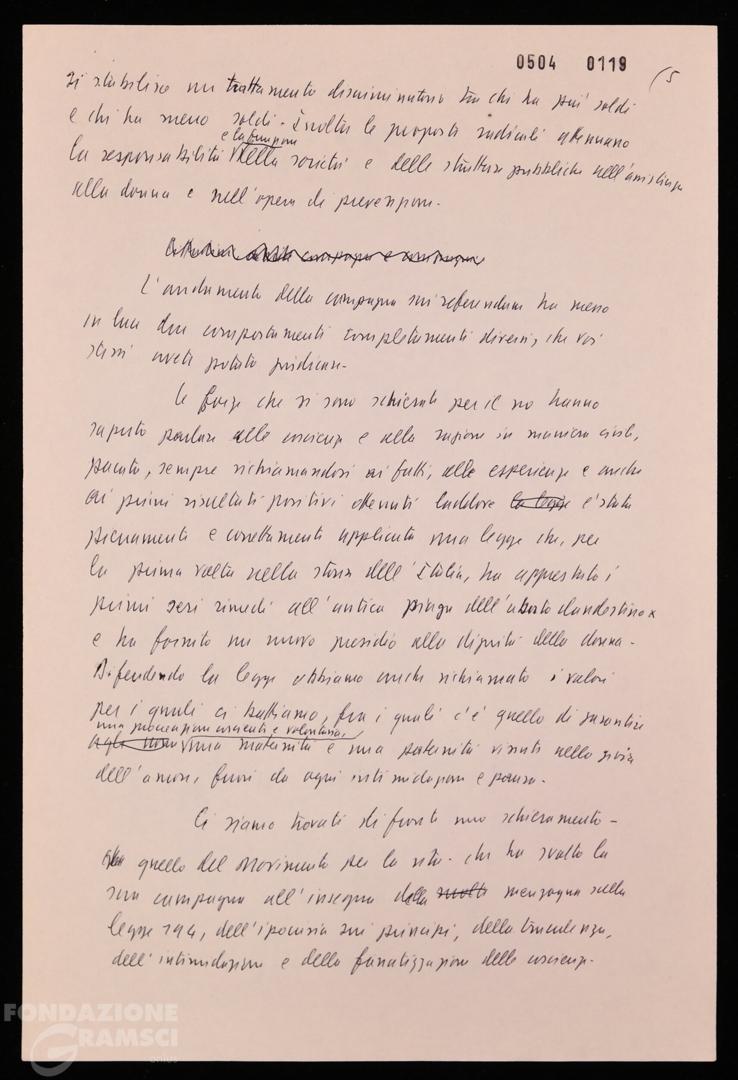 0504 0119
5
si stabilisce un trattamento discriminatorio tra chi ha più soldi
e chi ha meno soldi. Inoltre le proposte radicali attenuano
e la funzione
la responsabilità della società e delle strutture pubbliche nell'assistenza
alla donna e nell'opera di prevenzione.
L'andamento della campagna sui referendum ha messo
in luce due comportamenti completamenti diversi, che voi
stessi avete potuto giudicare.
Le forze che si sono schierate per il no hanno
saputo parlare alle coscienze e alla ragione in maniera civile,
pacata, sempre richiamandosi ai fatti, alle esperienze e anche
ai primi risultati positivi ottenuti laddove la legge è stata
pienamente e correttamente applicata una legge che, per
la prima volta nella storia dell'Italia, ha apprestato i
primi seri rimedi all'antica piaga dell'aborto clandestino
e ha fornito un nuovo presidio alla dignità della donna.
Difendendo la legge abbiamo anche richiamato i valori
per i quali ci battiamo, fra i quali c'è quello di garantire
una procreazione cosciente e volontaria,
una maternità e una paternità vissute nella gioia
dell'amore, fuori da ogni intimidazione e paura.
Ci siamo trovati di fronte uno schieramento -
quello del Movimento per la vita - che ha svolto la
sua campagna all'insegna della menzogna sulla
legge 194, dell'ipocrisia sui principi, della truculenza,
dell'intimidazione e della fanatizzazione delle coscienze.
FONDAZIONE
GRAMSCI
onlus